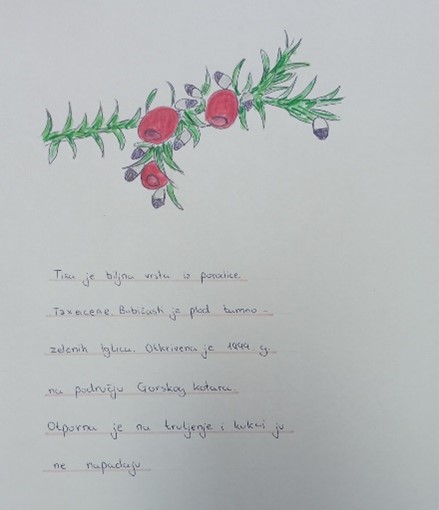 Tisa je biljna vrsta iz porodice
Taxaceae. Bobičasti je plod tamno -
zelenih iglica. Otkrivena je 1999 g.
na području Gorskog kotara.
Otporna je na truljenje i kukci ju
ne napadaju